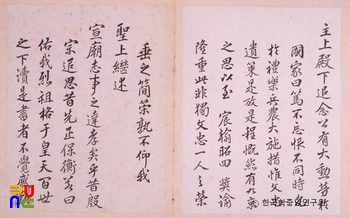 主上殿下追念公有大勳勞
國家曰篤不忘恨不同時
於禮樂兵農大施措惟文
遺策是放是程慨然有
之思以至 宸翰昭回 奬諭
隆重此非獨文忠一人之榮
垂之簡策孰不仰我
聖上繼述
宣廟志事之達孝矣乎昔殷
宗追思昔先正保衡曰
佑我烈祖格于皇天百世
之下讀是書者不覺感
한국학중앙연구원